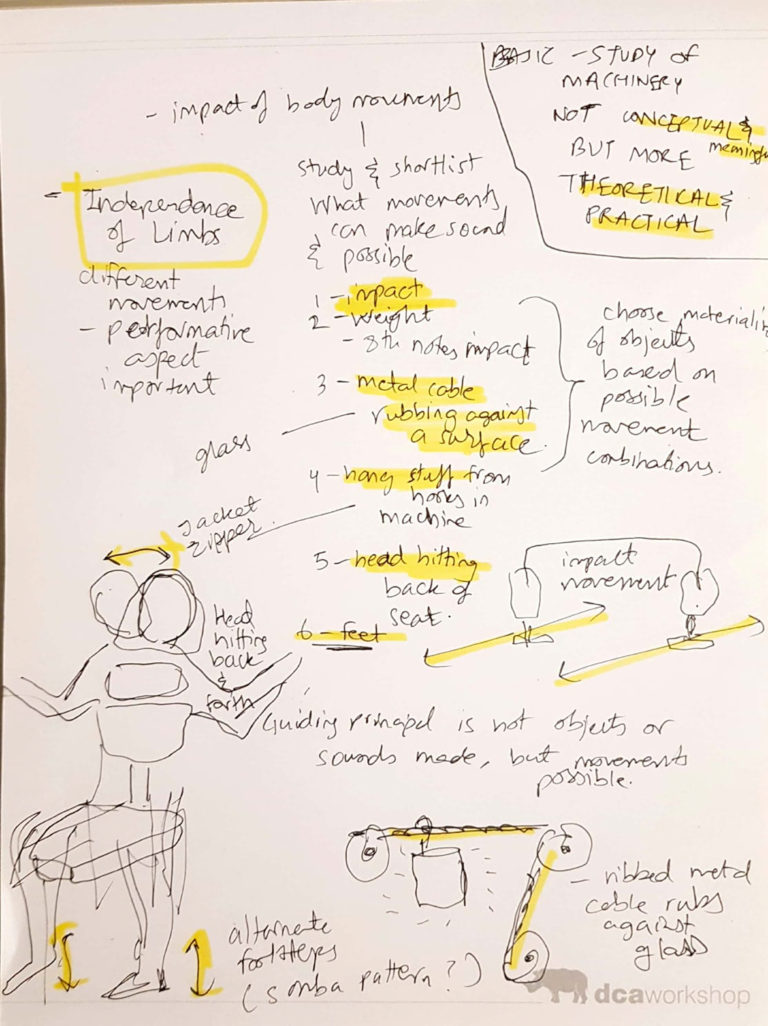 BASIC - STUDY OF
MACHINERY
NOT CONCEPTUAL &
meaningfu
BUT MORE
THEORETICAL &
PRACTICAL
- impact of body movements
study & shortlist
what movements
can make sound
& possible
Independence
of Limbs
different
movements
- performative
aspect
important
1 - impact
2 - weight
- 8th notes impact
3 - metal cable
rubbing against
a surface.
glass
4 - hang stuff from
hooks in
machine
Jacket
zipper
5 - head hitting
back of
seat.
6 - feet
choose materiality
of objects
based on
possible
movement
combinations.
impact
movement
Head
hitting
back
&
forth
Guiding principal is not objects or
sounds made, but movements
possible.
- ribbed metal
cable rubs
against
glass
alternate
footsteps
(somba pattern?)
dcaworkshop